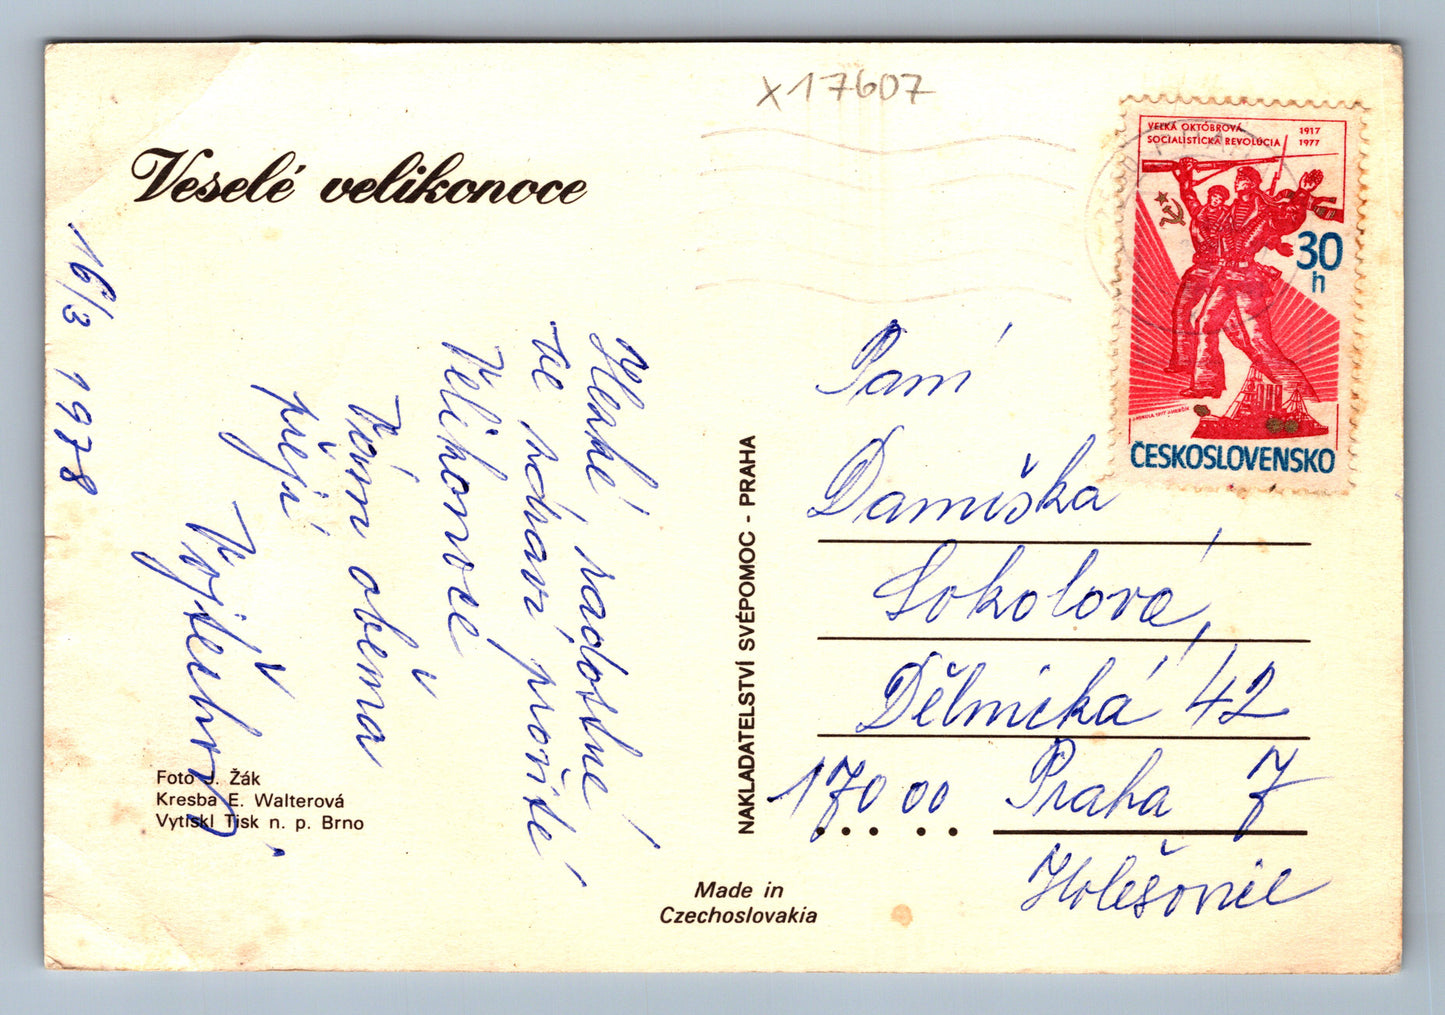 x17607
Veselé velikonoce
16/3 1978
Hezké radostné
ve zdraví prožité
Velikonoce
Vám oběma
přejí
Vojtěchovi
Foto J. Žák
Kresba E. Walterová
Vytiskl Tisk n. p. Brno
NAKLADATELSTVÍ SVÉPOMOC - PRAHA
Made in
Czechoslovakia
VEĽKÁ OKTÓBROVÁ 1917
SOCIALISTICKÁ REVOLÚCIA 1977
30
h
ČESKOSLOVENSKO
Paní
Damiška
Sokolová,
Dělnická 42
170 00 Praha 7
Holešovice